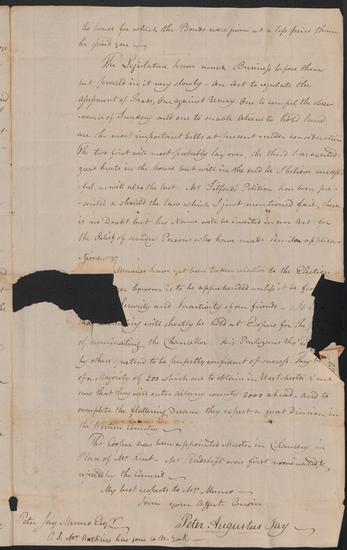 the house for which the Bonds were given at a less price than
he paid you —
The Legislature have much Business before them
but proceed in it very slowly — An Act to regulate the
assessment of Taxes, One against Usury One to compel the obser-
vance of Sunday and one to enable Aliens to hold land
are the most important bills at present under consideration
The two first will most probably lay over, the third has excited
great heats in the house but will in the end be I believe success-
ful as will also the last. Mr Petition has been pre-
sented & should the law which I just mentioned fail, there
is no Doubt but his Name will be inserted in an Act for
the Relief of sundry Persons who have made similar applica-
-tions —
Measures have yet been taken relative to the Election
Govern is to be apprehended unless it be from
Security and Inactivity of our friends — It is
meeting will shortly be held at Coopers for the
of nominating the Chancellor. His Partizans
by others, pretend to be perfectly confident of success. They
of a Majority of 200 which are to obtain in Westchester &
one that they will enter albany county 2000 ahead. and to
complete the flattering Dream they expect a great Division in
the Western Country —
Ths Cooper has been appointed Master in Chancery in
Place of Mr Mr Radcliff was first nominated &
rejected by the Council —
My best respects to Mrs Munro —
I am your affect. Cousin
Peter Augustus Jay
Peter Jay Munro Esqr
P.S. Mr has gone to N. York —